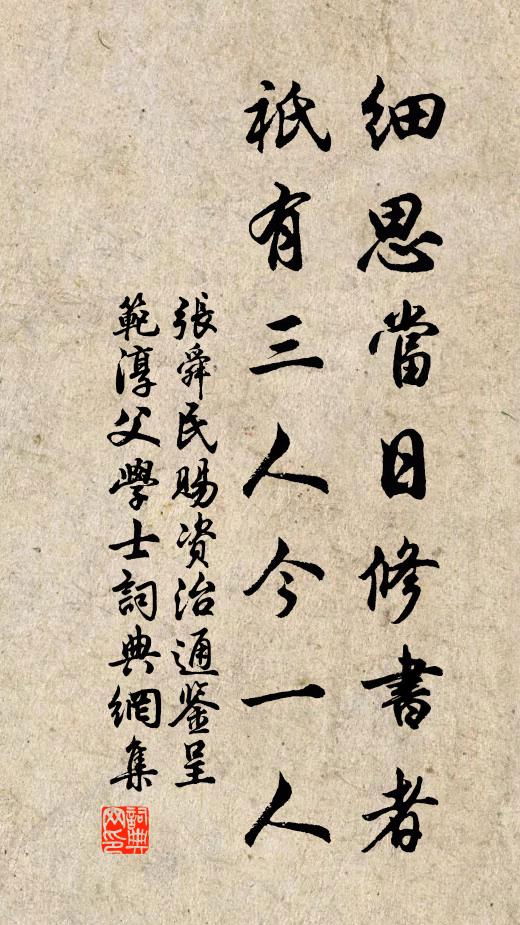 細思當日修書者
祇有三人今一人
張舜民賜資治通鑒呈
範淳父學士詞典網集
詞典网印